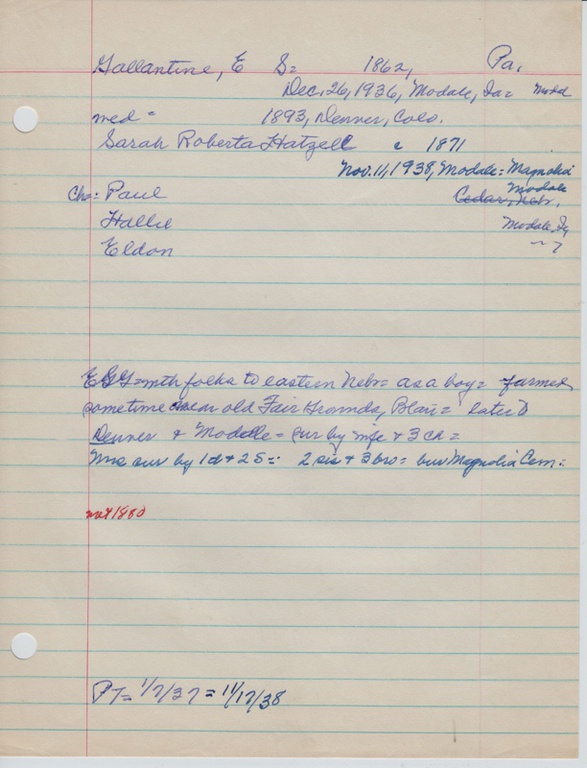 Gallantine, E S= 1862, Pa.
Dec. 26, 1936, Modale, Ia=
med = 1893, Denver, Colo.
Sarah Roberta Hatzell c 1871
Nov. 11, 1938, Modale= Magnolia
Ch= Paul Modale
Cedar, Nebr.
Hallie Modale, Ia
Eldon ~ 7
folks to eastern Nebr= as a boy= farmed
sometime near old Fair Grounds, Blair= later to
Denver & Modale= sur by wife & 3 ch=
Mrs sur by 1 d + 2 S= 2 sis + 3 bro= bur Magnolia Cem=
not 1880
PT= 1/7/37 = 11/17/38